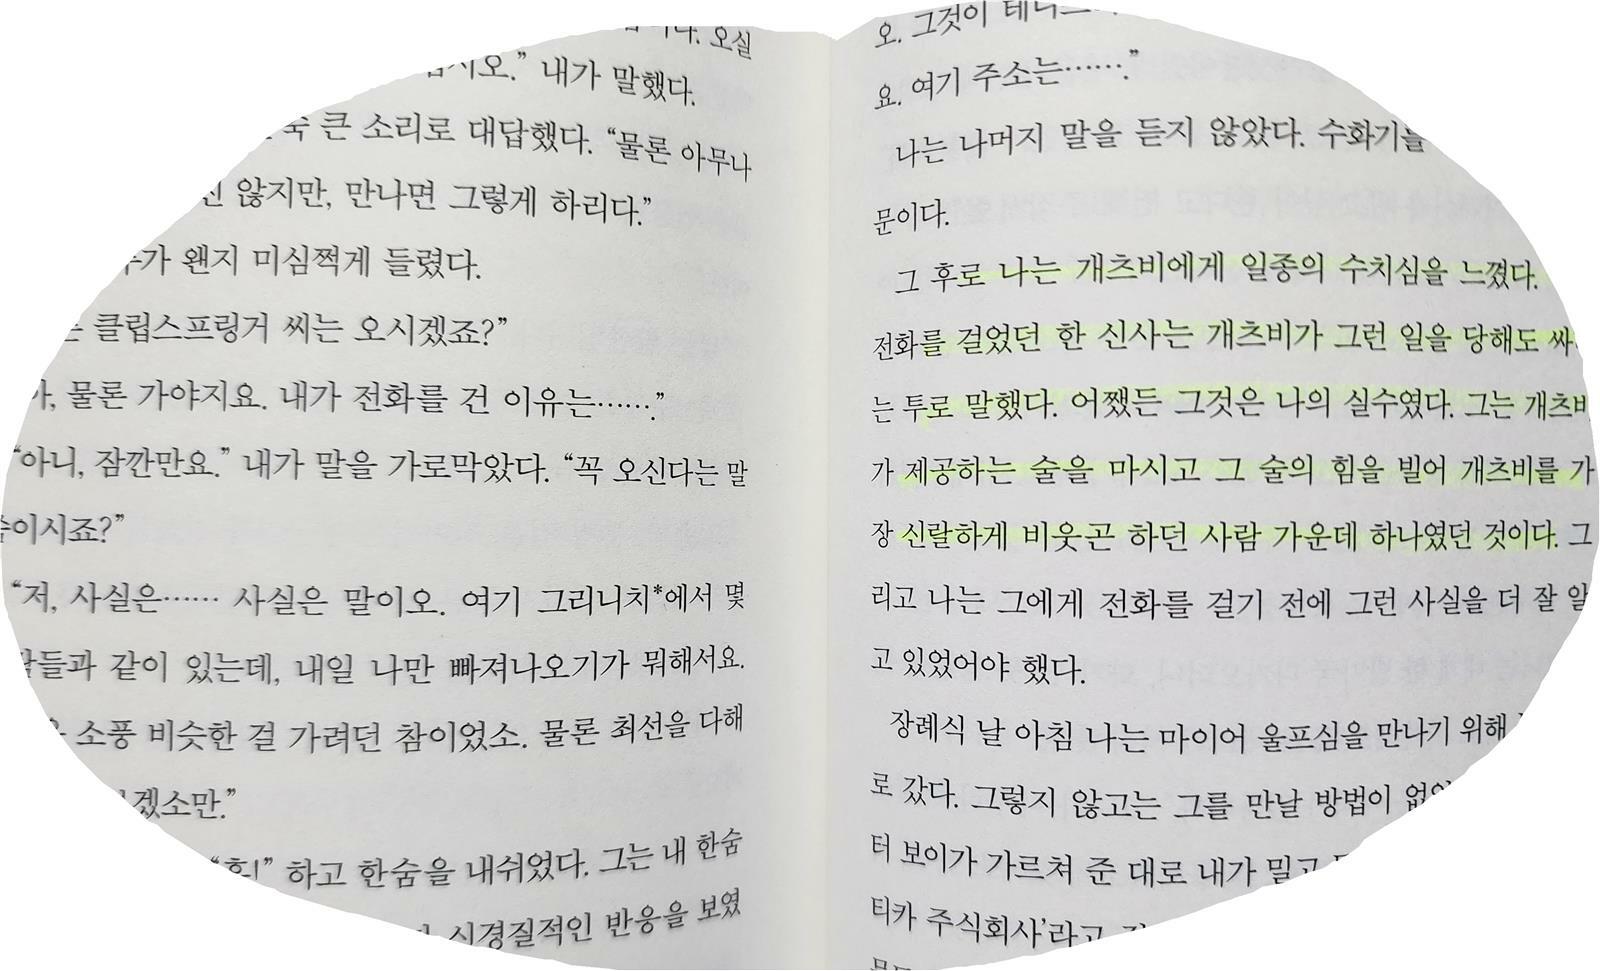 오실
내가 말했다.
큰 소리로 대답했다. “물론 아무나
않지만, 만나면 그렇게 하리다.”
왠지 미심쩍게 들렸다.
클립스프링거 씨는 오시겠죠?”
물론 가야지요. 내가 전화를 건 이유는……”
“아니, 잠깐만요.” 내가 말을 가로막았다. “꼭 오신다는 말
이시죠?”
“저, 사실은…… 사실은 말이오. 여기 그리니치*에서 몇
들과 같이 있는데, 내일 나만 빠져나오기가 뭐해서요.
소풍 비슷한 걸 가려던 참이었소. 물론 최선을 다해
겠소만.”
하고 한숨을 내쉬었다. 그는 내 한숨
신경질적인 반응을 보였
오. 그것이
요. 여기 주소는……”
나는 나머지 말을 듣지 않았다. 수화기를
문이다.
그 후로 나는 개츠비에게 일종의 수치심을 느꼈다.
전화를 걸었던 한 신사는 개츠비가 그런 일을 당해도 싸
는 투로 말했다. 어쨌든 그것은 나의 실수였다. 그는 개츠비
가 제공하는 술을 마시고 그 술의 힘을 빌어 개츠비를 가
장 신랄하게 비웃곤 하던 사람 가운데 하나였던 것이다. 그
리고 나는 그에게 전화를 걸기 전에 그런 사실을 더 잘 알
고 있었어야 했다.
장례식 날 아침 나는 마이어 울프심을 만나기 위해
로 갔다. 그렇지 않고는 그를 만날 방법이
터 보이가 가르쳐 준 대로 내가 밀고
티카 주식회사’라고